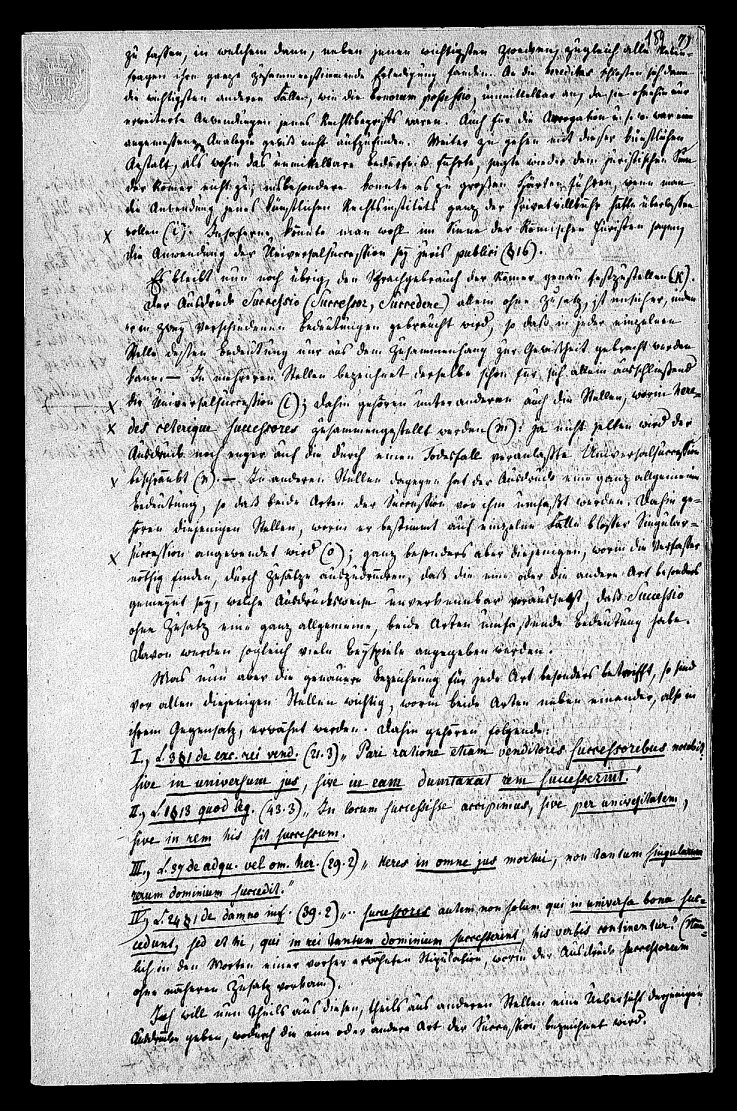 159 79
zu fassen, in welchem dann, neben jenen wichtigsten Zwecken, zugleich alle Neben-
fragen ihre ganz zusammenstimmende Erledigung fanden. An die hereditas schlossen sich dann
die wichtigsten anderen Fälle, wie die bonorum possessio, unmittelbar an, da sie ohnehin nur
erweiterte Anwendungen jenes Rechtsbegriffs waren. Auch für die Arrogation u. s. w. war eine
angemessene Analogie gewiß nicht aufzufinden. Weiter zu gehen mit dieser künstlichen
Anstalt, als wohin das unmittelbare Bedürfniß führte, sagte wieder dem juristischen Sinn
der Römer nicht zu; insbesondere konnte es zu großen Härten führen, wenn man
die Anwendung jenes künstlichen Rechtsinstituts ganz der Privatwillkühr hätte überlassen
wollen (i). Insofern könnte man wohl im Sinne der Römischen Juristen sagen,
die Anwendung der Universalsuccession sey juris publici (§ 16).
Es bleibt nun noch übrig, den Sprachgebrauch der Römer genau festzustellen (k).
Der Ausdruck Successio (Successor, Succedere) allein ohne Zusatz, ist unsicher, indem
er in zwey verschiedenen Bedeutungen gebraucht wird, so daß in jeder einzelnen
Stelle dessen Bedeutung nur aus dem Zusammenhang zur Gewißheit gebracht werden
kann. — In mehreren Stellen bezeichnet derselbe schon für sich allein ausschließend
die Universalsuccession (l); dahin gehören unter anderen auch die Stellen, worin here-
des ceterique successores zusammengestellt werden (m): ja nicht selten wird der
Ausdruck noch enger auf die durch einen Todesfall veranlaßte Universalsuccession
beschränkt (n). — In anderen Stellen dagegen hat der Ausdruck eine ganz allgemeine
Bedeutung, so daß beide Arten der Succession von ihm umfaßt werden. Dahin ge-
hören diejenigen Stellen, worin er bestimmt auf einzelne Fälle bloßer Singular-
succession angewendet wird (o); ganz besonders aber diejenigen, worin die Verfasser
nöthig finden, durch Zusätze auszudrücken, daß die eine oder die andere Art besonders
gemeynt sey, welche Ausdrucksweise unverkennbar voraussetzt, daß Successio
ohne Zusatz eine ganz allgemeine, beide Arten umfassende Bedeutung habe.
Davon werden sogleich viele Beyspiele angegeben werden.
Was nun aber die genauere Bezeichnung für jede Art besonders betrifft, so sind
vor allen diejenigen Stellen wichtig, worin beide Arten neben einander, also in
ihrem Gegensatz, erwähnt werden. Dahin gehören folgende:
I., L. 3 § 1 de exc. rei vend. (21. 3) „Pari ratione etiam venditoris successoribus nocebit:
sive in universum jus, sive in eam dumtaxat rem successerint."
II., L. 1 § 13 quod leg. (43. 3) „In locum successisse accipimus, sive per universitatem,
sive in rem his sit successum.
III., L. 37 de adqu. vel om. her. (29. 2) „Heres in omne jus mortui, non tantum singularum
rerum dominium succedit."
IV., L. 24 § 1 de damno inf. (39. 2) „.. successores autem non solum qui in universa bona suc-
cedunt, sed et hi, qui in rei tantum dominium successerint, his verbis continentur." (Näm-
lich in den Worten einer vorher erwähnten Stipulation, worin der Ausdruck successorum
ohne näheren Zusatz vorkam).
Ich will nun theils aus diesen, theils aus anderen Stellen eine Uebersicht derjenigen
Ausdrücke geben, wodurch die eine oder andere Art der Succession bezeichnet wird.